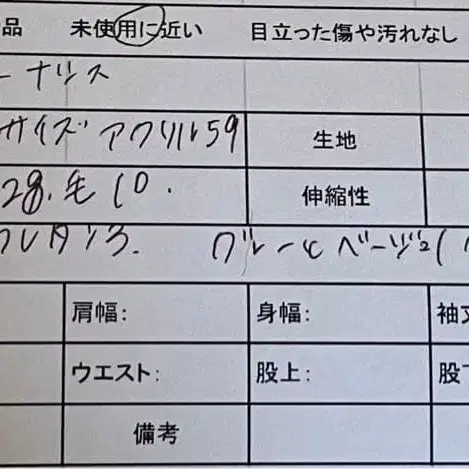 品 未使用に近い 目立った傷や汚れなし
ーナリス
サイズ アクリル59 生地
28.毛10. 伸縮性
ウレタン3. グレーとベージュ(
肩幅: 身幅: 袖丈
ウエスト: 股上: 股下
備考